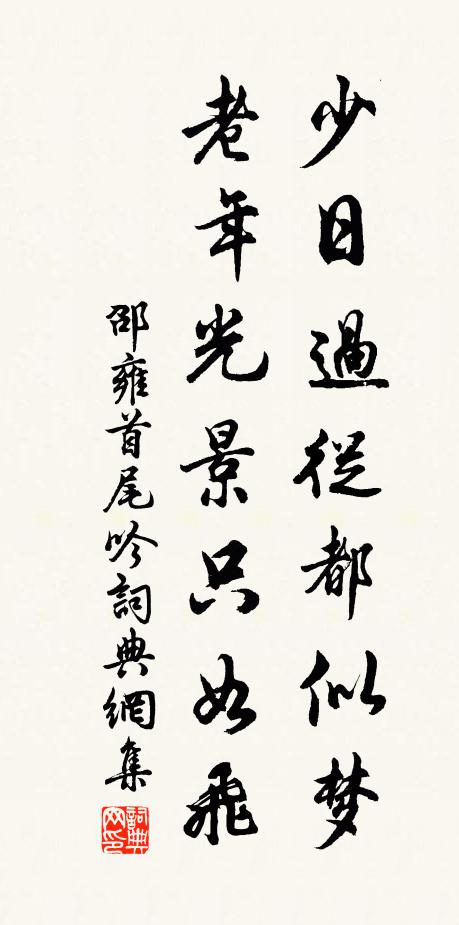 少日過從都似梦
老年光景只如飛
邵雍首尾吟詞典網集
詞典
网印